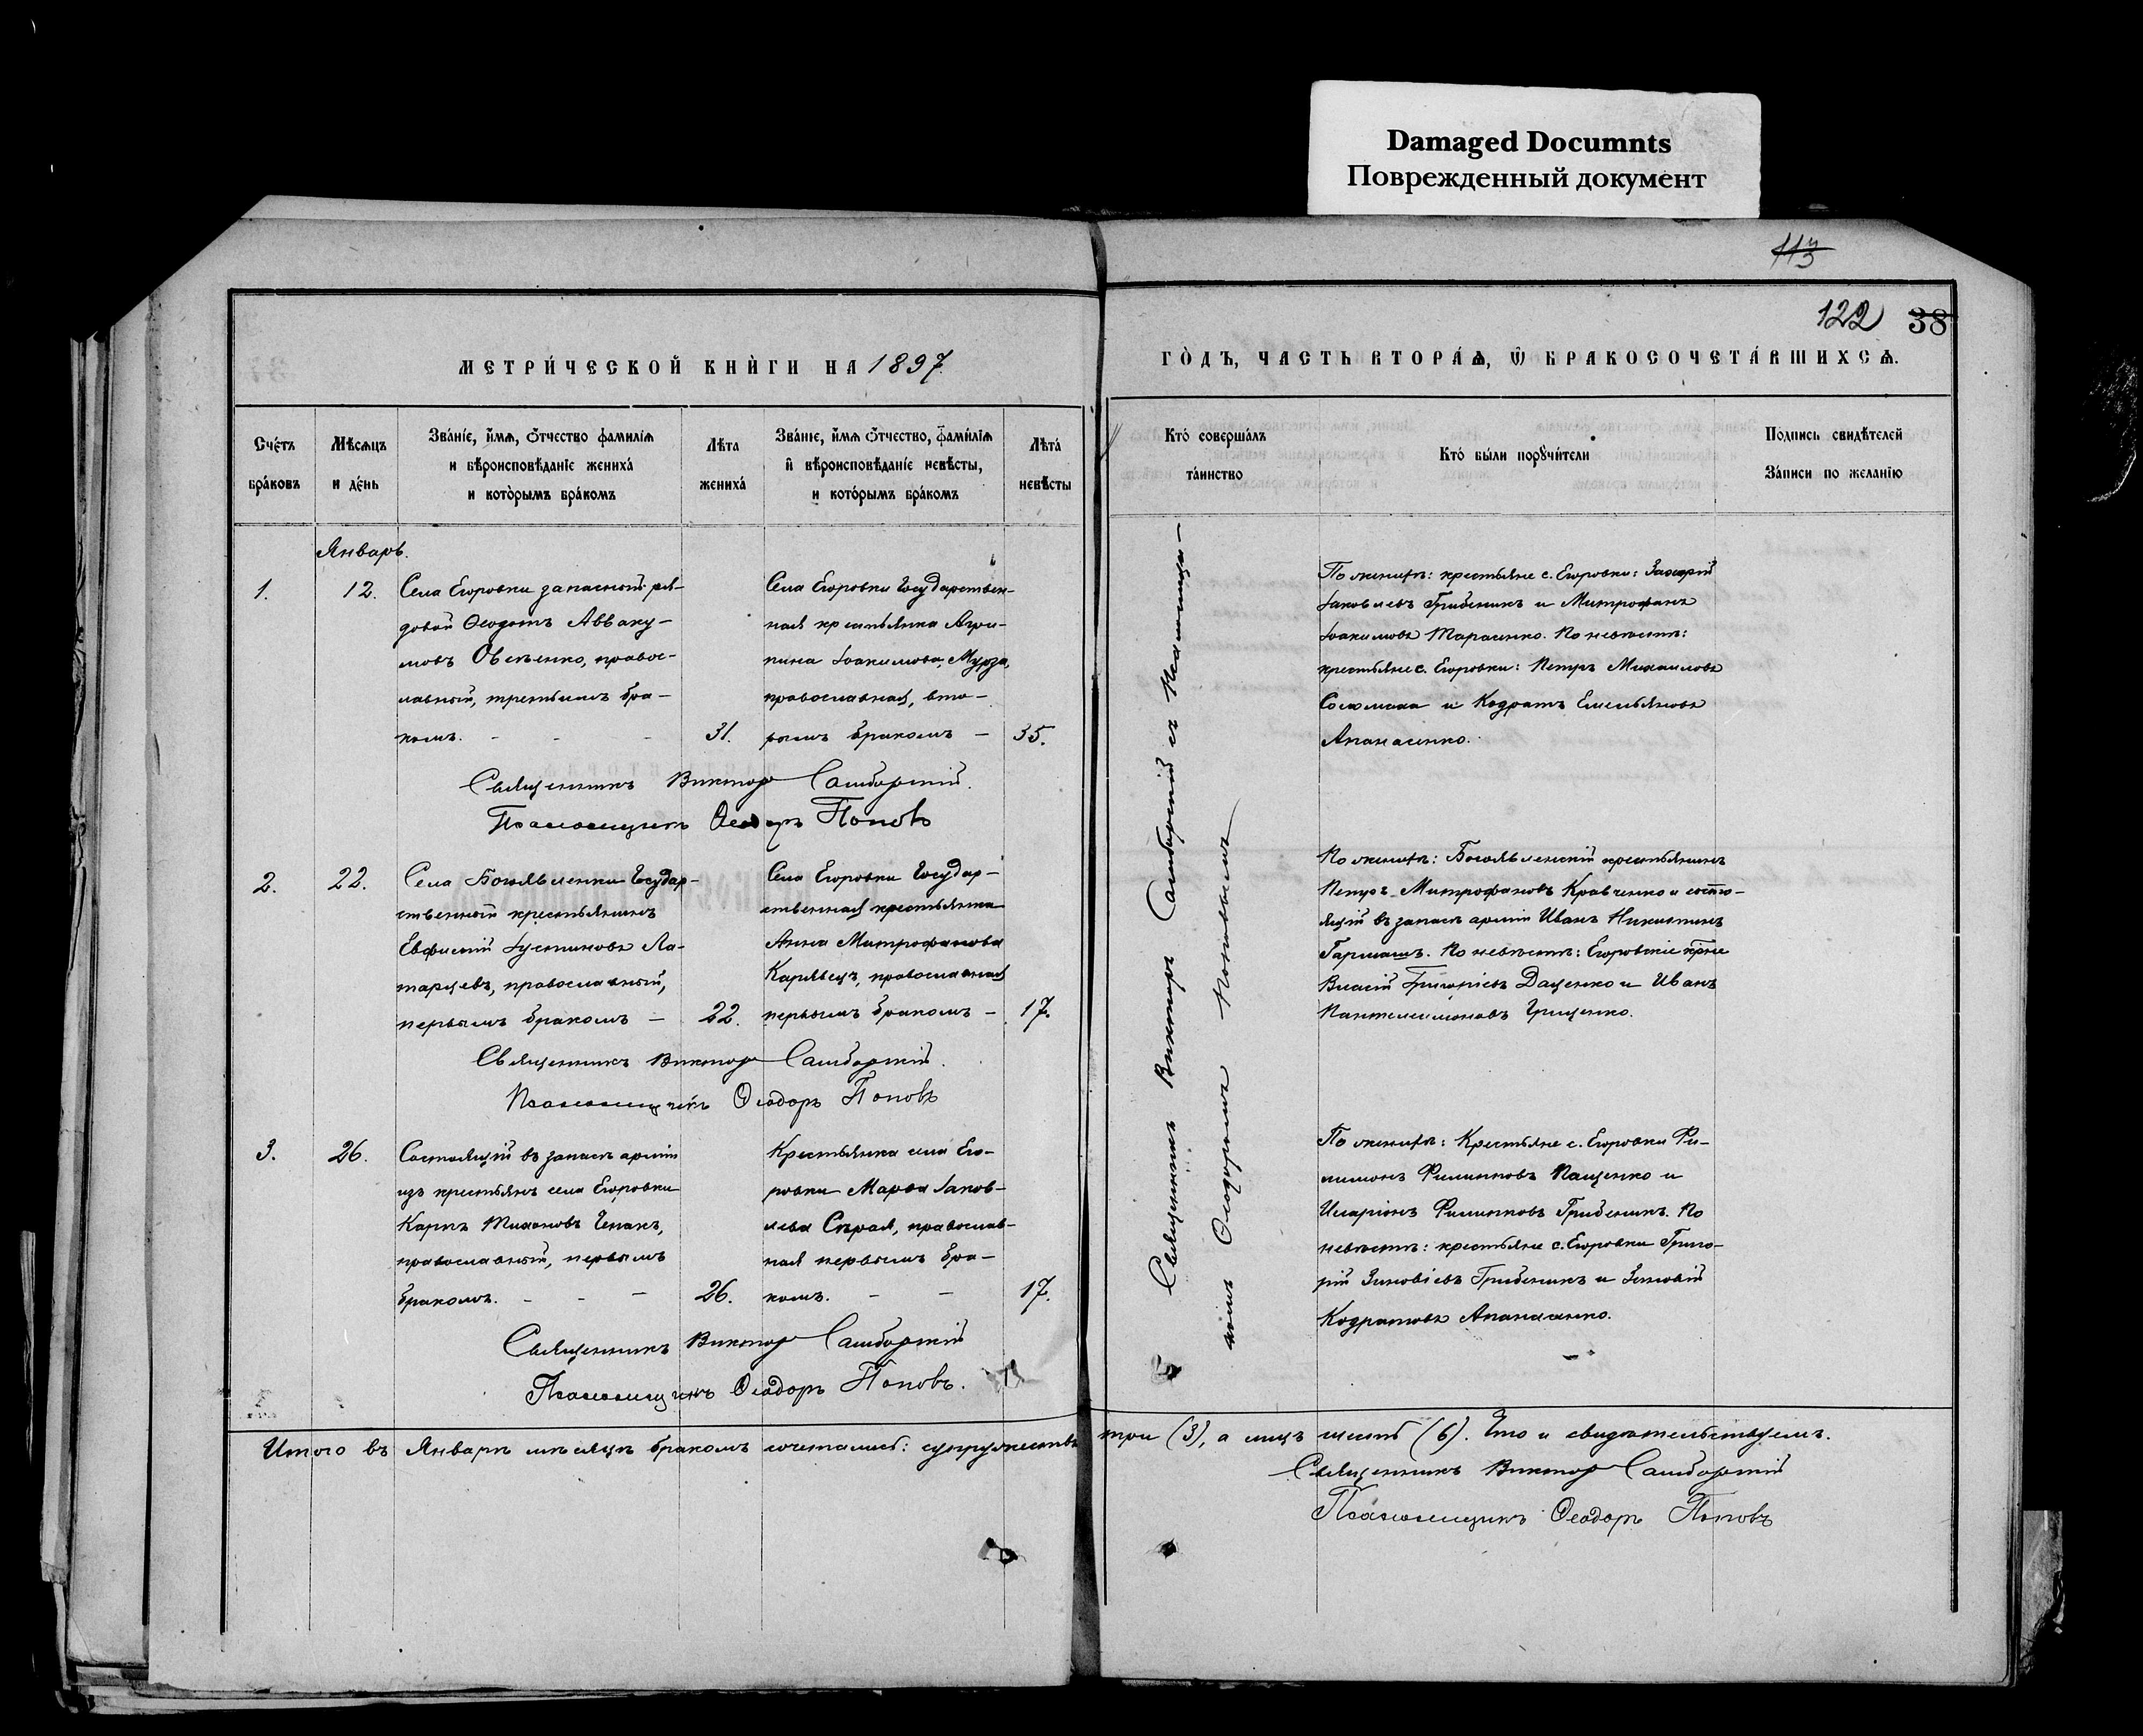 Damaged Documnts
Поврежденный документ
113
122 38
МЕТРИ́ЧЕСКОЙ КНЍГИ НА 1897
ГО̀ДЪ, ЧАСТЬ ВТОРА́Ѧ, Ѿ БРАКОСОЧЕТА́ВШИХСѦ.
Сче́тъ
бра́ковъ
Мѣ́сѧцъ
и де́нь
Зва́нїе, и̑мѧ, о́тчество фами́лїѧ
и вѣроисповѣ́данїе жениха́
и кото̀рымъ бра́комъ
Лѣ́та
жениха́
Зва́нїе, и̑мѧ о́тчество, фами́лїѧ
и̑ вѣроисповѣ́данїе невѣ́сты,
и кото́рымъ бра́комъ
Лѣ́та
невѣ́сты
Кто́ соверша́лъ
та́инство
Кто́ бы́ли порꙋчи́тели
По́дпись свидѣ́телей
За́писи по жела́нїю
Январь.
1.
12.
Села Егоровки запасной ря-
довой Ѳеодотъ Авваку-
мовъ Овсѣенко, правос-
лавный, третьимъ бра-
комъ. - - -
31.
Села Егоровки Государствен-
ная крестьянка Агри-
пина Іоакимова Мурза,
православная, вто-
рымъ бракомъ -
35.
По женихѣ: крестьяне с. Егоровки: Захарій
Іаковлевъ Грибеникъ и Митрофанъ
Іоакимовъ Тарасенко. По невѣстѣ:
крестьяне с. Егоровки: Петръ Михаиловъ
и Кодратъ Емельяновъ
Апанасенко.
Священникъ Викторъ Самборскій.
Псаломщикъ Ѳеодоръ Поповъ
2.
22.
Села Богоявленки Государ-
ственный крестьянинъ
Евфимій Іустиновъ Ла-
тарцевъ, православный,
первымъ бракомъ -
22.
Села Егоровки Государ-
ственная крестьянка
Анна Митрофанова
православная
первымъ бракомъ -
17.
По женихѣ: Богоявленскій крестьянинъ
Петръ Митрофановъ Кравченко и состо-
ящій въ запасѣ арміи Иванъ Никитинъ
Гармашъ. По невѣстѣ: Егоровскіе кр-не
Власій Григоріевъ Даценко и Иванъ
Пантелеимоновъ Грищенко.
Священникъ Викторъ Самборскій.
Псаломщикъ Ѳеодоръ Поповъ
3.
26.
Состоящій въ запасѣ арміи
изъ крестьянъ села Егоровки
Карпъ Тихоновъ Чепакъ,
православный, первымъ
бракомъ. - - -
26.
Крестьянка села Его-
ровки Марѳа Іаков-
лева Сѣрая, православ-
ная первымъ бра-
комъ. - -
17.
По женихѣ: Крестьяне с. Егоровки Фи-
лимонъ Филиповъ Пащенко и
Иларіонъ Филиповъ Грибеникъ. По
невѣстѣ: крестьяне с. Егоровки Григо-
рій Зиновіевъ Грибеникъ и Зиновій
Кодратовъ Апанасенко.
Священникъ Викторъ Самборскій
Псаломщикъ Ѳеодоръ Поповъ.
Священникъ Викторъ Самборскій съ Псаломщи-
комъ Ѳеодоромъ Поповымъ
Итого въ Январѣ мѣсяцѣ бракомъ сочетались: супружествъ три (3), а лицъ шесть (6). Что и свидѣтельствуемъ.
Священникъ Викторъ Самборскій
Псаломщикъ Ѳеодоръ Поповъ